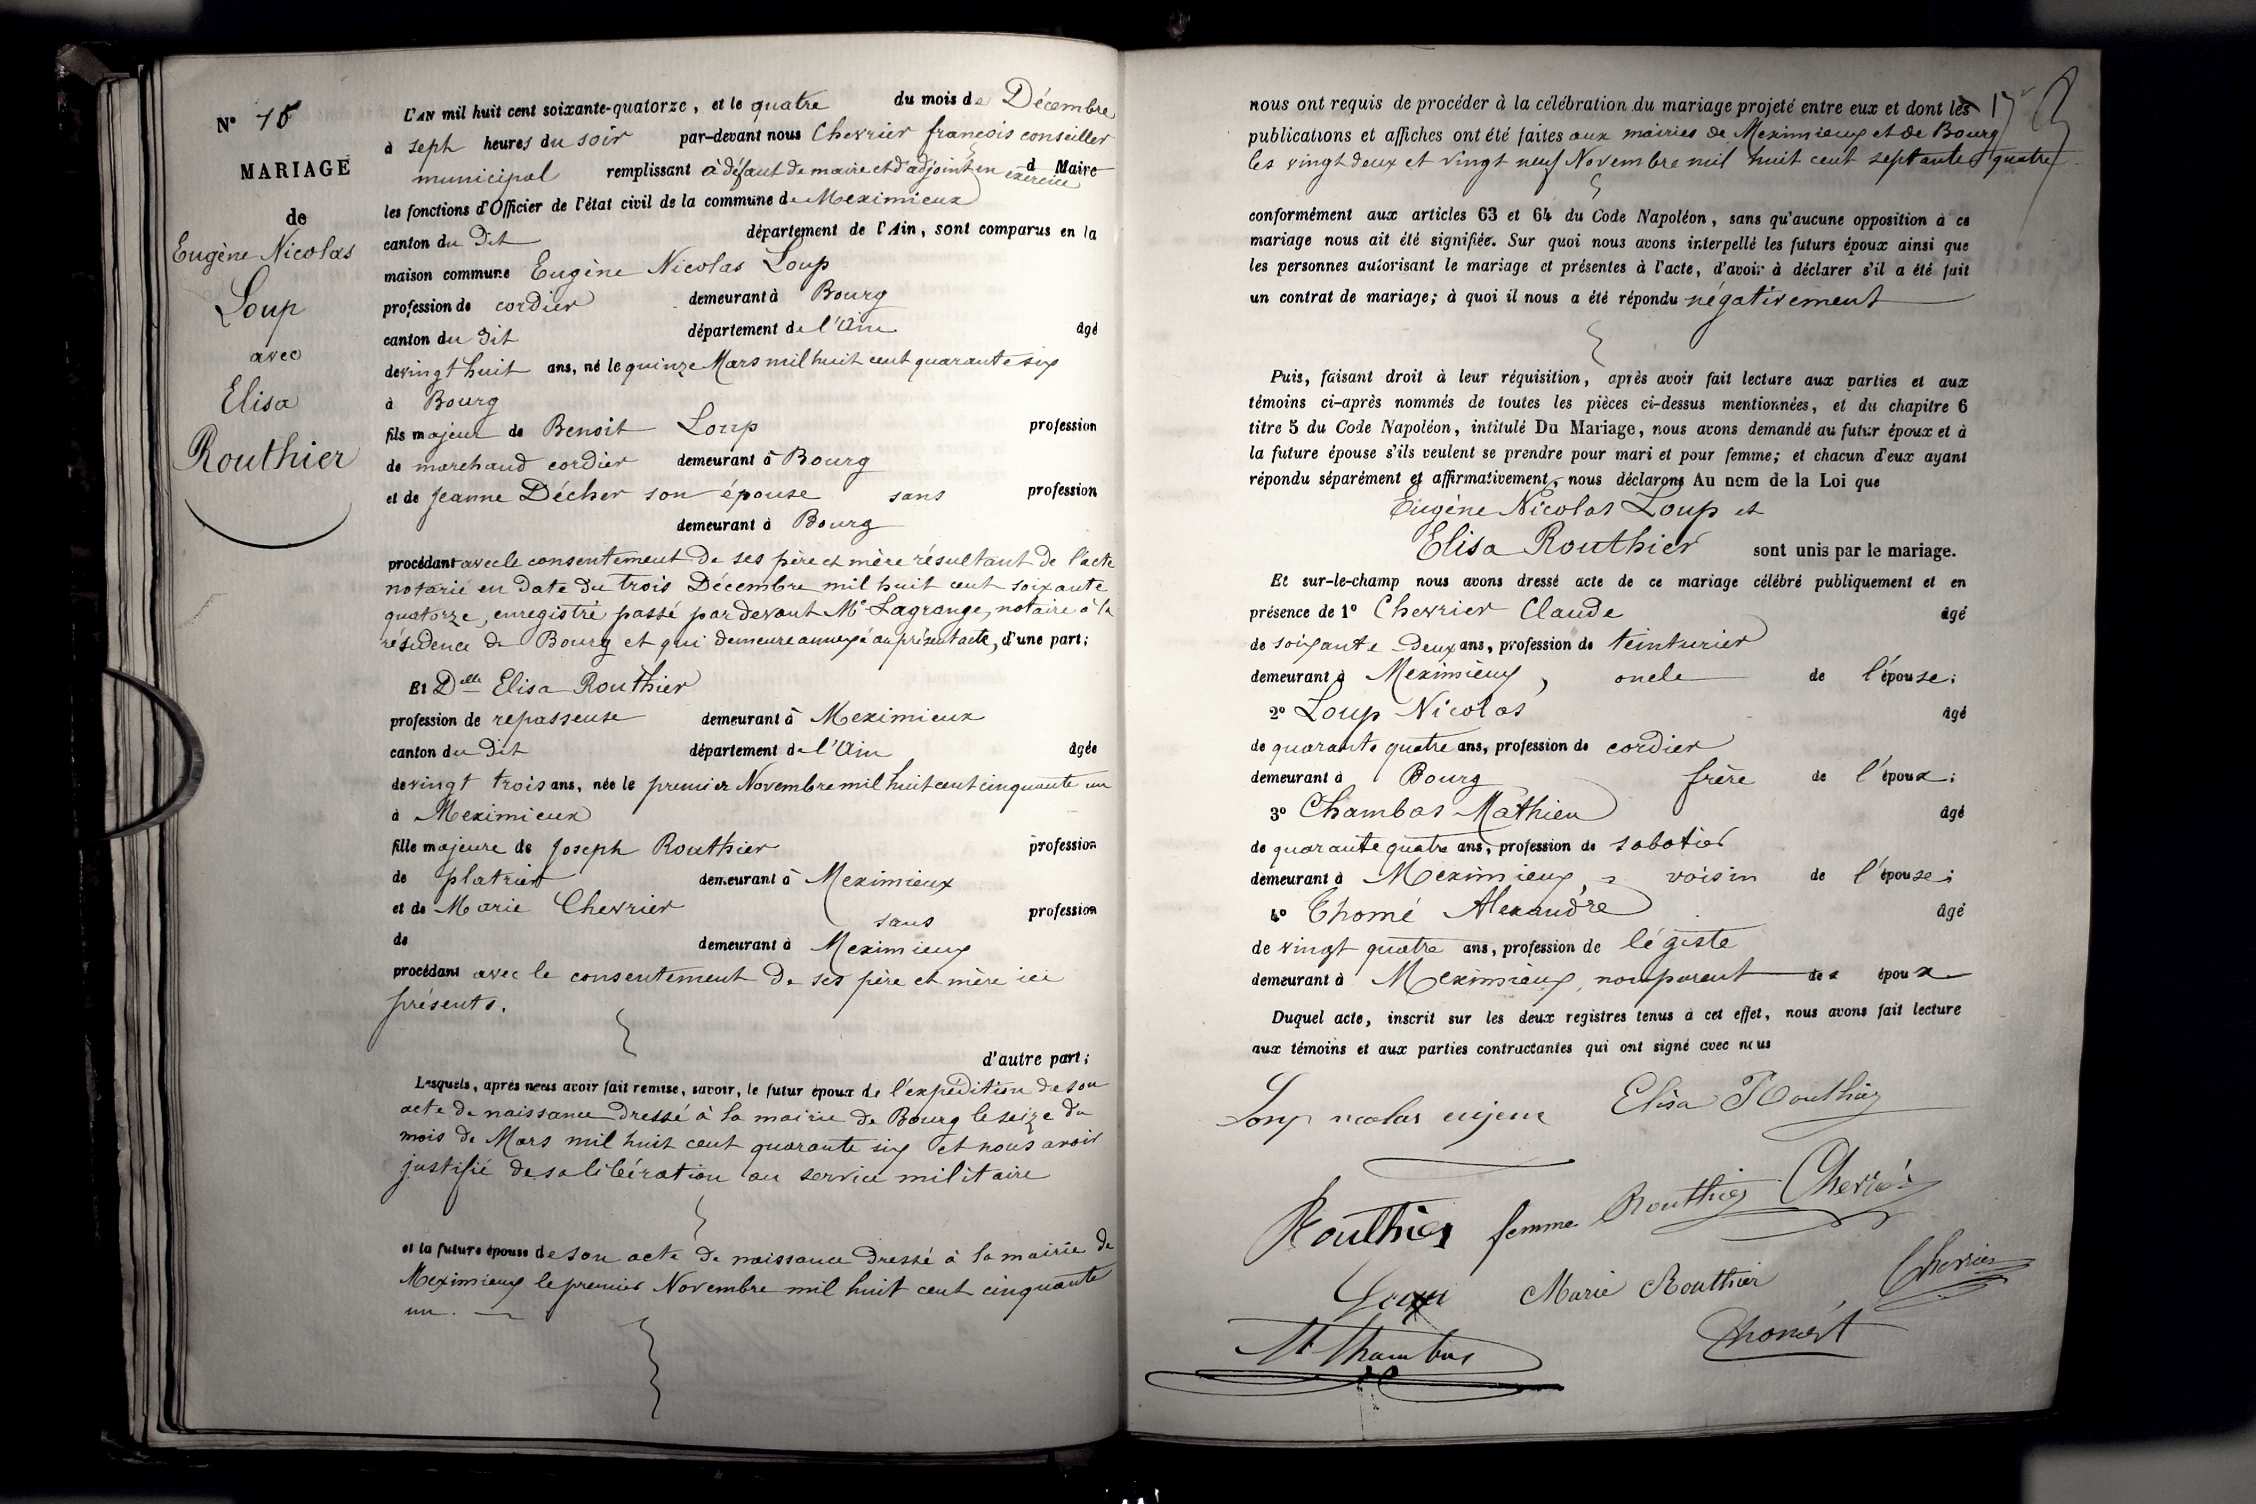 N° 15
MARIAGE
de
Eugène Nicolas
Loup
avec
Elisa
Routhier
L'AN mil huit cent soixante-quatorze, et le quatre du mois de Décembre
à sept heures du soir par-devant nous Chevrier françois conseiller
municipal remplissant à défaut de maire et d'adjoint en exercice d Maire
les fonctions d'Officier de l'état civil de la commune de Meximieux
canton du dit département de l'Ain, sont comparus en la
maison commune Eugène Nicolas Loup
profession de cordier demeurant à Bourg
canton du dit département de l'Ain âgé
de vingt huit ans, né le quinze Mars mil huit cent quarante six
à Bourg
fils majeur de Benoit Loup profession
de marchand cordier demeurant à Bourg
et de Jeanne Décher son épouse sans profession
demeurant à Bourg
procédant avec le consentement de ses père et mère résultant de l'acte
notarié en date du trois Décembre mil huit cent soixante
quatorze, enregistré passé par devant Me Lagrange, notaire à la
résidence de Bourg et qui demeure annexé au présent acte, d'une part;
Et Delle Elisa Routhier
profession de repasseuse demeurant à Meximieux
canton du dit département de l'Ain âgée
de vingt trois ans, née le premier Novembre mil huit cent cinquante un
à Meximieux
fille majeure de Joseph Routhier profession
de platrier demeurant à Meximieux
et de Marie Chevrier sans profession
de demeurant à Meximieux
procédant avec le consentement de ses père et mère ici
présents.
d'autre part;
Lesquels, après nous avoir fait remise, savoir, le futur époux de l'expédition de son
acte de naissance dressé à la mairie de Bourg le seize du
mois de Mars mil huit cent quarante six et nous avoir
justifié de sa libération au service militaire
et la future épouse de son acte de naissance dressé à la mairie de
Meximieux le premier Novembre mil huit cent cinquante
un.
nous ont requis de procéder à la célébration du mariage projeté entre eux et dont les
publications et affiches ont été faites aux mairies de Meximieux et de Bourg
les vingt deux et vingt neuf Novembre mil huit cent septante quatre
conformément aux articles 63 et 64 du Code Napoléon, sans qu'aucune opposition à ce
mariage nous ait été signifiée. Sur quoi nous avons interpellé les futurs époux ainsi que
les personnes autorisant le mariage et présentes à l'acte, d'avoir à déclarer s'il a été fait
un contrat de mariage; à quoi il nous a été répondu négativement
Puis, faisant droit à leur réquisition, après avoir fait lecture aux parties et aux
témoins ci-après nommés de toutes les pièces ci-dessus mentionnées, et du chapitre 6
titre 5 du Code Napoléon, intitulé Du Mariage, nous avons demandé au futur époux et à
la future épouse s'ils veulent se prendre pour mari et pour femme; et chacun d'eux ayant
répondu séparément et affirmativement, nous déclarons Au nom de la Loi que
Eugène Nicolas Loup et
Elisa Routhier sont unis par le mariage.
Et sur-le-champ nous avons dressé acte de ce mariage célébré publiquement et en
présence de 1° Chevrier Claude âgé
de soixante deux ans, profession de teinturier
demeurant à Meximieux, oncle de l'épouse;
2° Loup Nicolas âgé
de quarante quatre ans, profession de cordier
demeurant à Bourg frère de l'époux;
3° Chambas Mathieu âgé
de quarante quatre ans, profession de sabotier
demeurant à Meximieux, voisin de l'épouse;
4° Thomé Alexandre âgé
de vingt quatre ans, profession de légiste
demeurant à Meximieux, non parent des époux
Duquel acte, inscrit sur les deux registres tenus à cet effet, nous avons fait lecture
aux témoins et aux parties contractantes qui ont signé avec nous
Loup nicolas eujene Elisa Routhier
Routhier femme Routhier Chevrier
Loup Marie Routhier Chevrier
M Chambas